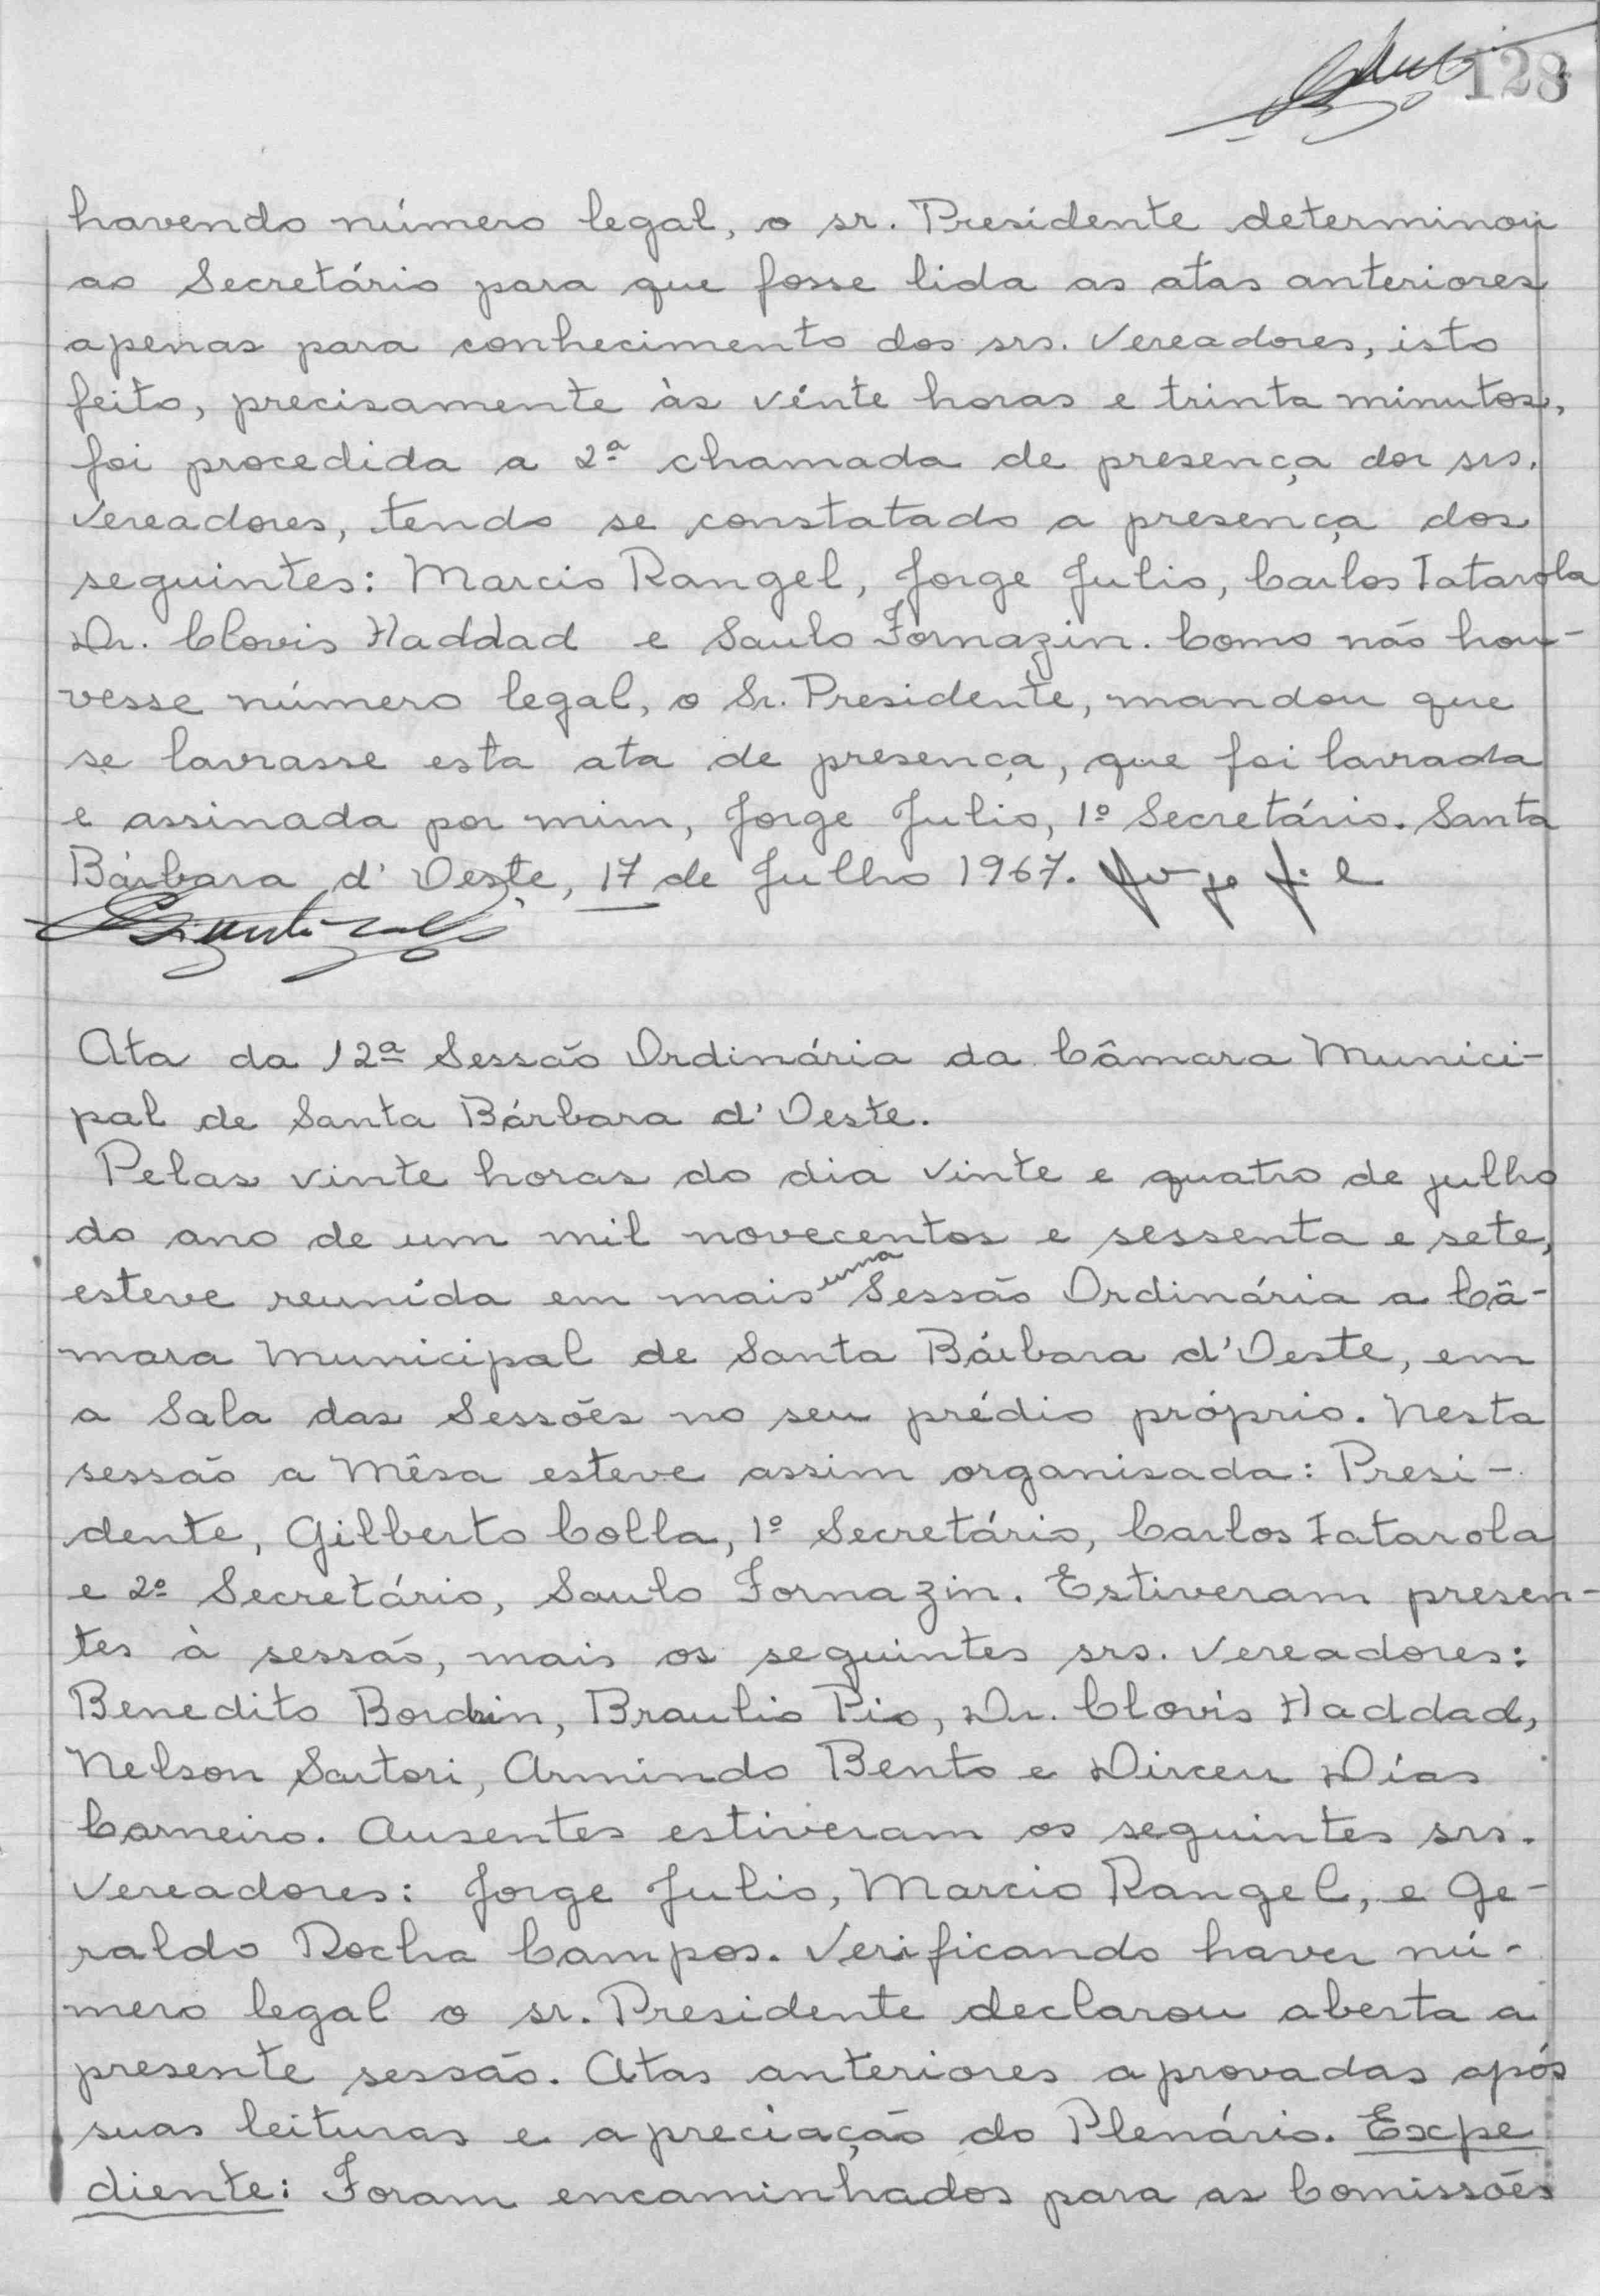 128
havendo número legal, o sr. Presidente determinou
ao Secretário para que fosse lida as atas anteriores
apenas para conhecimento dos srs. Vereadores, isto
feito, precisamente às vinte horas e trinta minutos,
foi procedida a 2ª chamada de presença dos srs.
Vereadores, tendo se constatado a presença dos
seguintes: Marcio Rangel, Jorge Julio, Carlos Fatarola
Dr. Clovis Haddad e Saulo Fornazin. Como não hou-
vesse número legal, o Sr. Presidente, mandou que
se lavrasse esta ata de presença, que foi lavrada
e assinada por mim, Jorge Julio, 1º Secretário. Santa
Bárbara d'Oeste, 17 de Julho 1967.
Ata da 12ª Sessão Ordinária da Câmara Munici-
pal de Santa Bárbara d'Oeste.
Pelas vinte horas do dia vinte e quatro de julho
do ano de um mil novecentos e sessenta e sete,
esteve reunida em mais uma Sessão Ordinária a Câ-
mara Municipal de Santa Bárbara d'Oeste, em
a Sala das Sessões no seu prédio próprio. Nesta
sessão a Mêsa esteve assim organisada: Presi-
dente, Gilberto Colla, 1º Secretário, Carlos Fatarola
e 2º Secretário, Saulo Fornazin. Estiveram presen-
tes à sessão, mais os seguintes srs. Vereadores:
Benedito Bordin, Braulio Pio, Dr. Clovis Haddad,
Nelson Sartori, Armindo Bento e Dirceu Dias
Carneiro. Ausentes estiveram os seguintes srs.
Vereadores: Jorge Julio, Marcio Rangel, e Ge-
raldo Rocha Campos. Verificando haver nú-
mero legal o sr. Presidente declarou aberta a
presente sessão. Atas anteriores aprovadas após
suas leituras e apreciação do Plenário. Expe
diente: Foram encaminhados para as Comissões